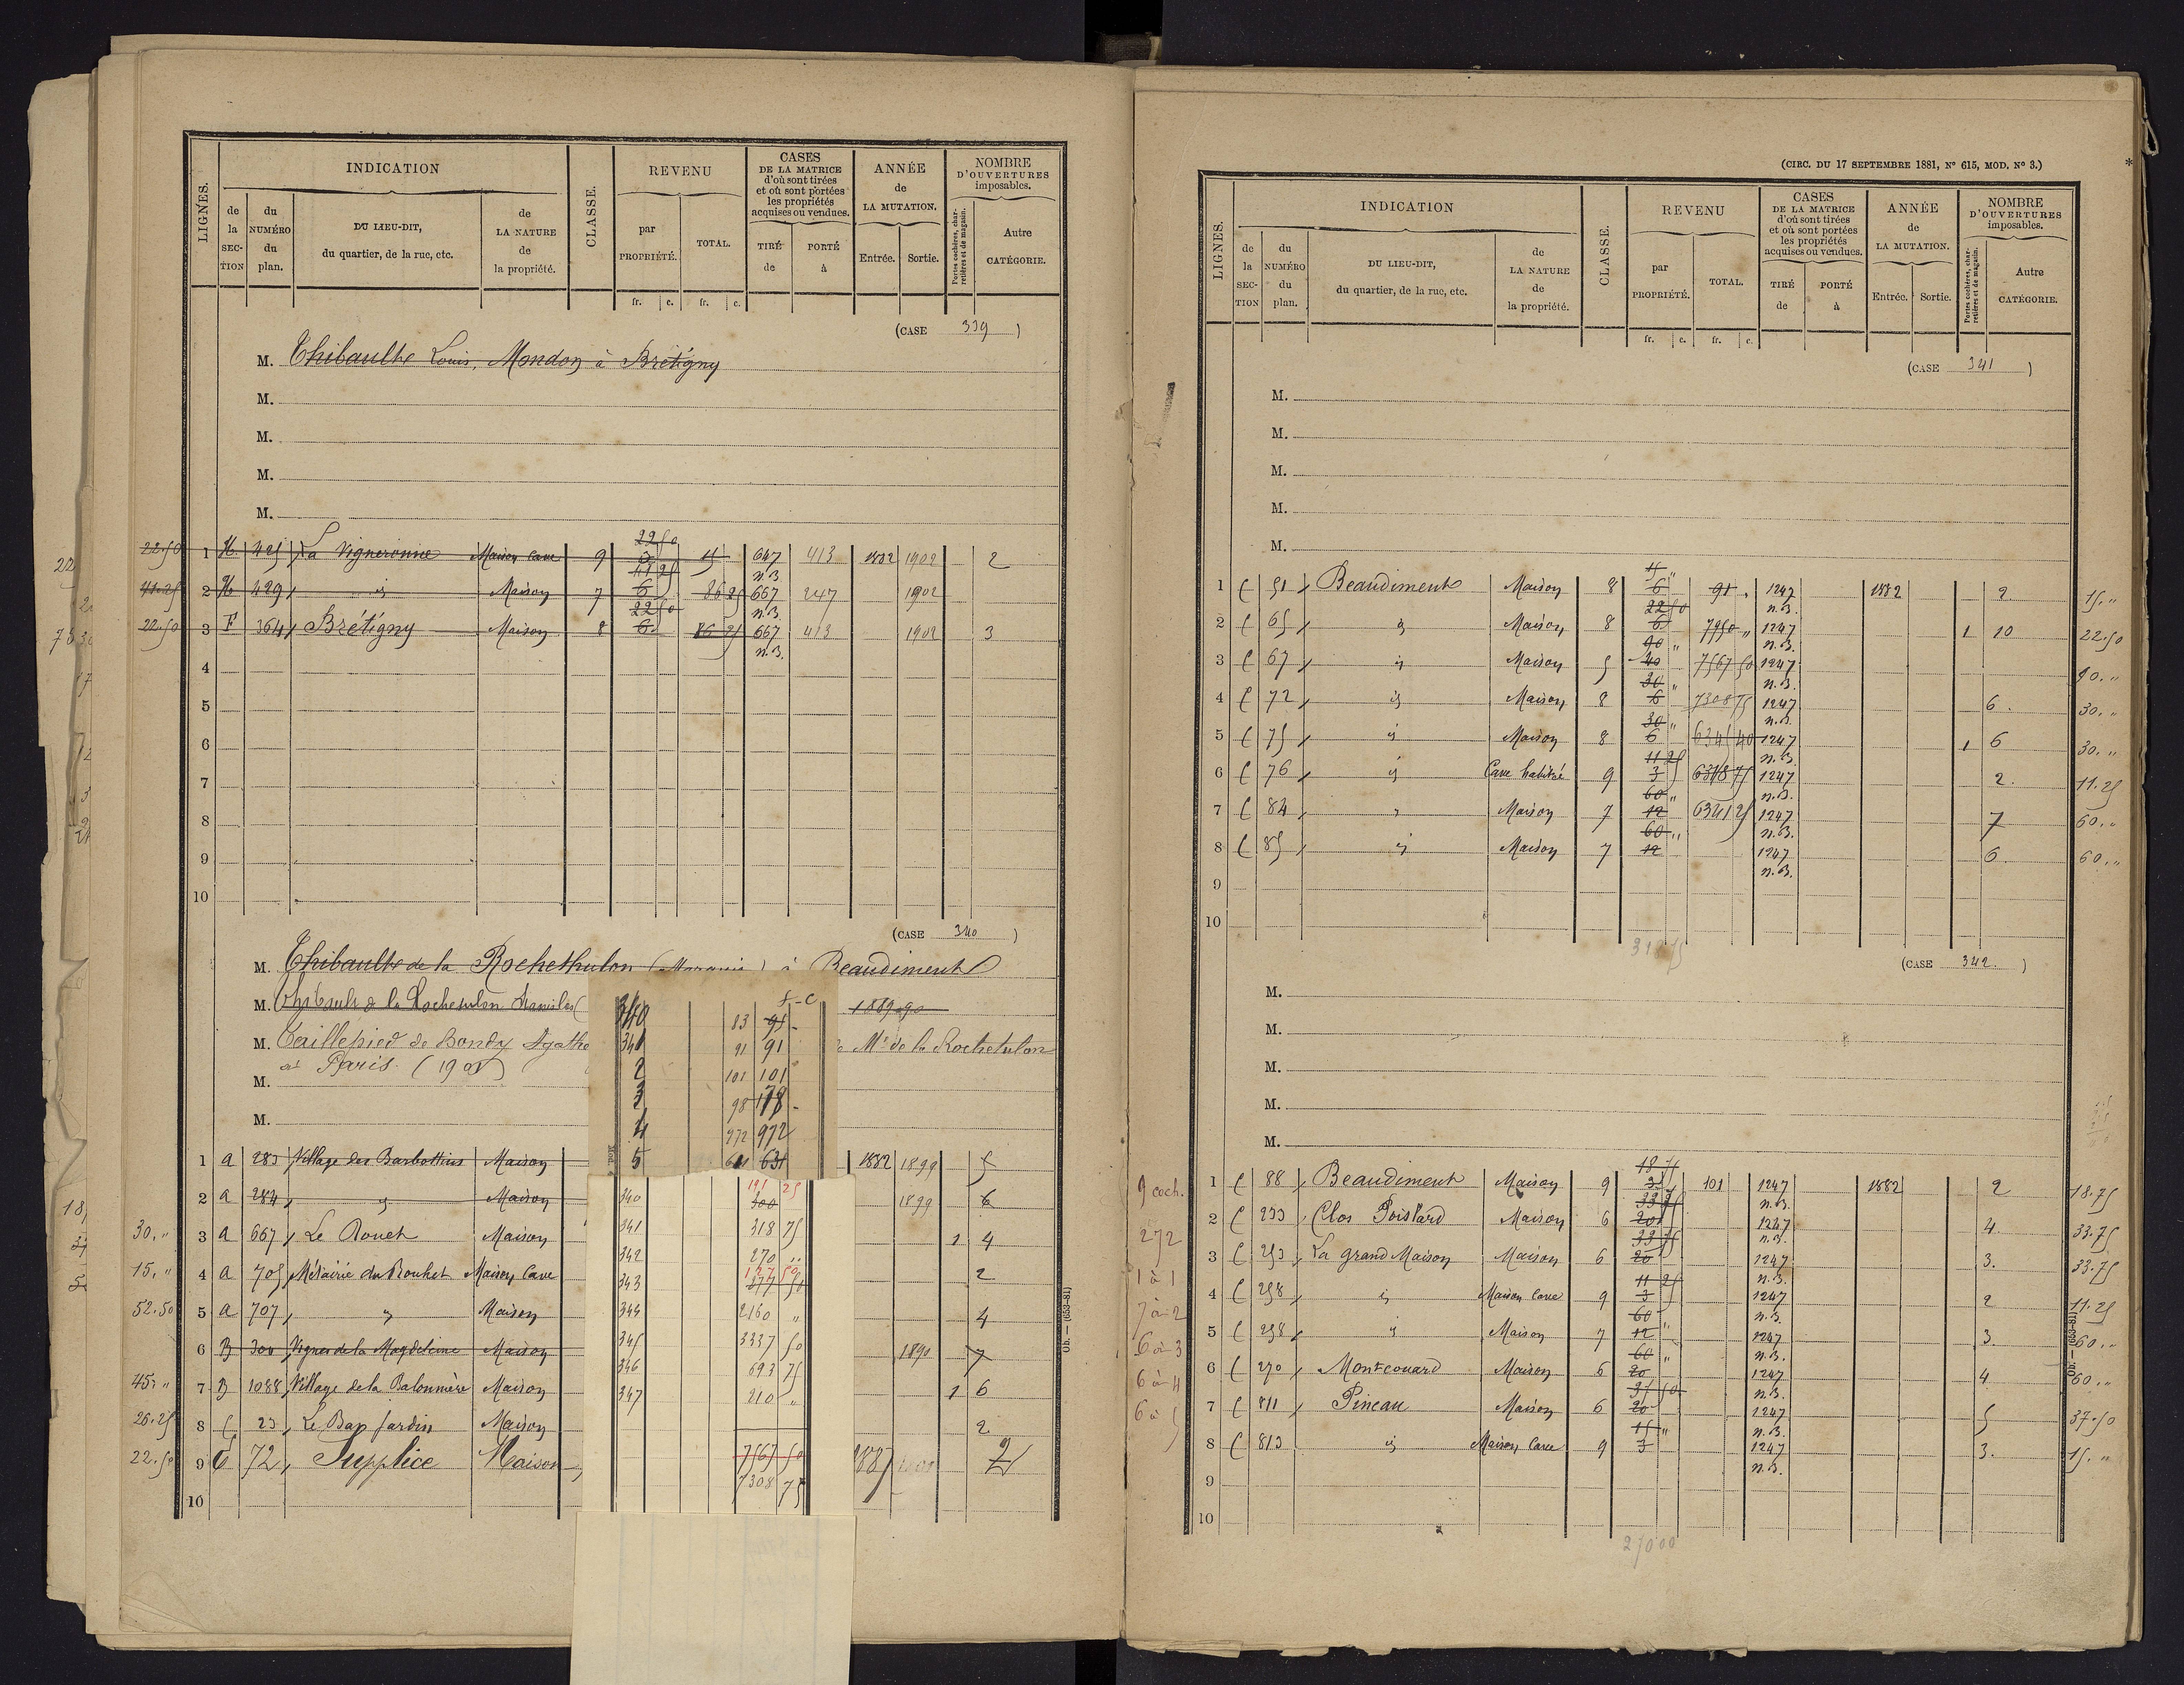 LIGNES.
INDICATION
de la SECTION
du NUMÉRO du plan.
DU LIEU-DIT, du quartier, de la rue, etc.
de LA NATURE de la propriété.
CLASSE.
REVENU
par PROPRIÉTÉ.
TOTAL.
fr. c. fr. c.
CASES DE LA MATRICE d'où sont tirées et où sont portées les propriétés acquises ou vendues.
TIRÉ de
PORTÉ à
ANNÉE de LA MUTATION.
Entrée. Sortie.
NOMBRE D'OUVERTURES imposables.
Portes cochères, charretières et de magasin.
Autre CATÉGORIE.
(CASE 339)
M. Thibault Louis, Mondon à Brétigny
M.
M.
M.
M.
22.50 1 H 425 La Vigneronne Maison Cave 9 22 50 3 15 647 n.B. 413 1882 1902 2
41.25 2 H 429 id Maison 7 41 25 6 86 25 667 n.B. 247 1902
22.50 3 F 364 Brétigny Maison 8 22 50 6 86 25 667 n.B. 413 1902 3
4
5
6
7
8
9
10
(CASE 340)
M. Thibault de la Rochethulon (Marquis) à Beaudiment
M. Thibault de la Rochethulon Stanislas ( 1889
M. Taillepied de Bondy Agathe Mis de la Rochethulon
M. à Paris (190
M.
1 A 283 Village des Barbottins Maison 1882 1899 5
2 A 284 id Maison 1899 6
30. " 3 A 667 Le Rouet Maison 1 4
15. " 4 A 705 Métairie du Rouhet Maison Cave 2
52.50 5 A 707 " Maison 4
6 B 300 Vignes de la Magdeleine Maison 1890 7
45. " 7 B 1088 Village de la Balonnière Maison 1 6
26.25 8 C 23 Le Bas Jardin Maison 2
22.50 9 C 72 Supplice Maison 1887 2
10
f - c
340 83 95
341 91 91
2 101 101
3 98 178
4 972 972
5 631
340 300 191 25
341 318 75
342 270 "
343 377 50 127 50
344 2160 "
345 3337 50
346 693 75
347 210 "
7567 50
7308 75
(CIRC. DU 17 SEPTEMBRE 1881, N° 615, MOD. N° 3.)
LIGNES.
INDICATION
de la SECTION
du NUMÉRO du plan.
DU LIEU-DIT, du quartier, de la rue, etc.
de LA NATURE de la propriété.
CLASSE.
REVENU
par PROPRIÉTÉ.
TOTAL.
fr. c. fr. c.
CASES DE LA MATRICE d'où sont tirées et où sont portées les propriétés acquises ou vendues.
TIRÉ de
PORTÉ à
ANNÉE de LA MUTATION.
Entrée. Sortie.
NOMBRE D'OUVERTURES imposables.
Portes cochères, charretières et de magasin.
Autre CATÉGORIE.
(CASE 341)
M.
M.
M.
M.
M.
1 C 51 Beaudiment Maison 8 15 " 6 91 " 1247 n.B. 1882 2 15. "
2 C 65 id Maison 8 22 50 6 7950 " 1247 n.B. 1 10 22.50
3 C 67 id Maison 5 90 " 40 7567 50 1247 n.B. 90. "
4 C 72 id Maison 8 30 " 6 7308 75 1247 n.B. 6 30. "
5 C 75 id Maison 8 30 " 6 6345 40 1247 n.B. 1 6 30. "
6 C 76 id Cave habitée 9 11 25 3 6318 75 1247 n.B. 2 11.25
7 C 84 " Maison 7 60 " 12 6341 25 1247 n.B. 7 60. "
8 C 85 id Maison 7 60 " 12 1247 n.B. 6 60. "
9
10
318 75
(CASE 342.)
M.
M.
M.
M.
M.
1 C 88 Beaudiment Maison 9 18 75 3 101 1247 n.B. 1882 2 18.75
2 C 233 Clos Poislard Maison 6 33 75 20 1247 n.B. 4 33.75
3 C 253 La grand Maison Maison 6 33 75 20 1247 n.B. 3. 33.75
4 C 258 id Maison Cave 9 11 25 3 1247 n.B. 2 11.25
5 C 258 id Maison 7 60 " 12 1247 n.B. 3. 60. "
6 C 270 Montcouard Maison 6 60 " 20 1247 n.B. 4 60. "
7 C 811 Pineau Maison 6 37 50 20 1247 n.B. 5 37.50
8 C 813 id Maison Cave 9 15 " 3 1247 n.B. 3. 15. "
9
10
270 00
9 coch.
272
1 à 1
7 à 2
6 à 3
6 à 4
6 à 5